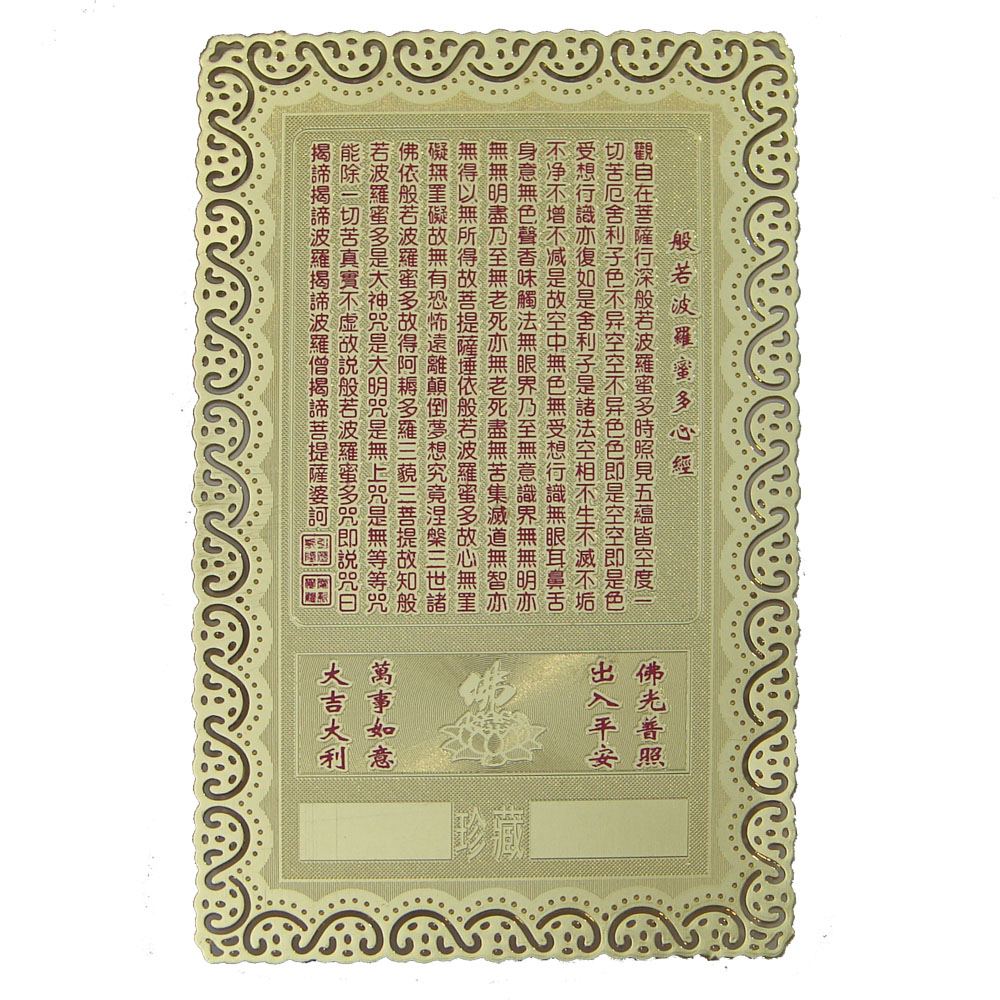 般若波羅蜜多心經
觀自在菩薩行深般若波羅蜜多時照見五蘊皆空度一
切苦厄舍利子色不异空空不异色色即是空空即是色
受想行識亦復如是舍利子是諸法空相不生不滅不垢
不净不增不减是故空中無色無受想行識無眼耳鼻舌
身意無色聲香味觸法無眼界乃至無意識界無無明亦
無無明盡乃至無老死亦無老死盡無苦集滅道無智亦
無得以無所得故菩提薩埵依般若波羅蜜多故心無罣
礙無罣礙故無有恐怖遠離顛倒夢想究竟涅槃三世諸
佛依般若波羅蜜多故得阿耨多羅三藐三菩提故知般
若波羅蜜多是大神咒是大明咒是無上咒是無等等咒
能除一切苦真實不虚故説般若波羅蜜多咒即説咒曰
揭諦揭諦波羅揭諦波羅僧揭諦菩提薩婆訶
佛光普照
出入平安
佛
萬事如意
大吉大利
珍藏